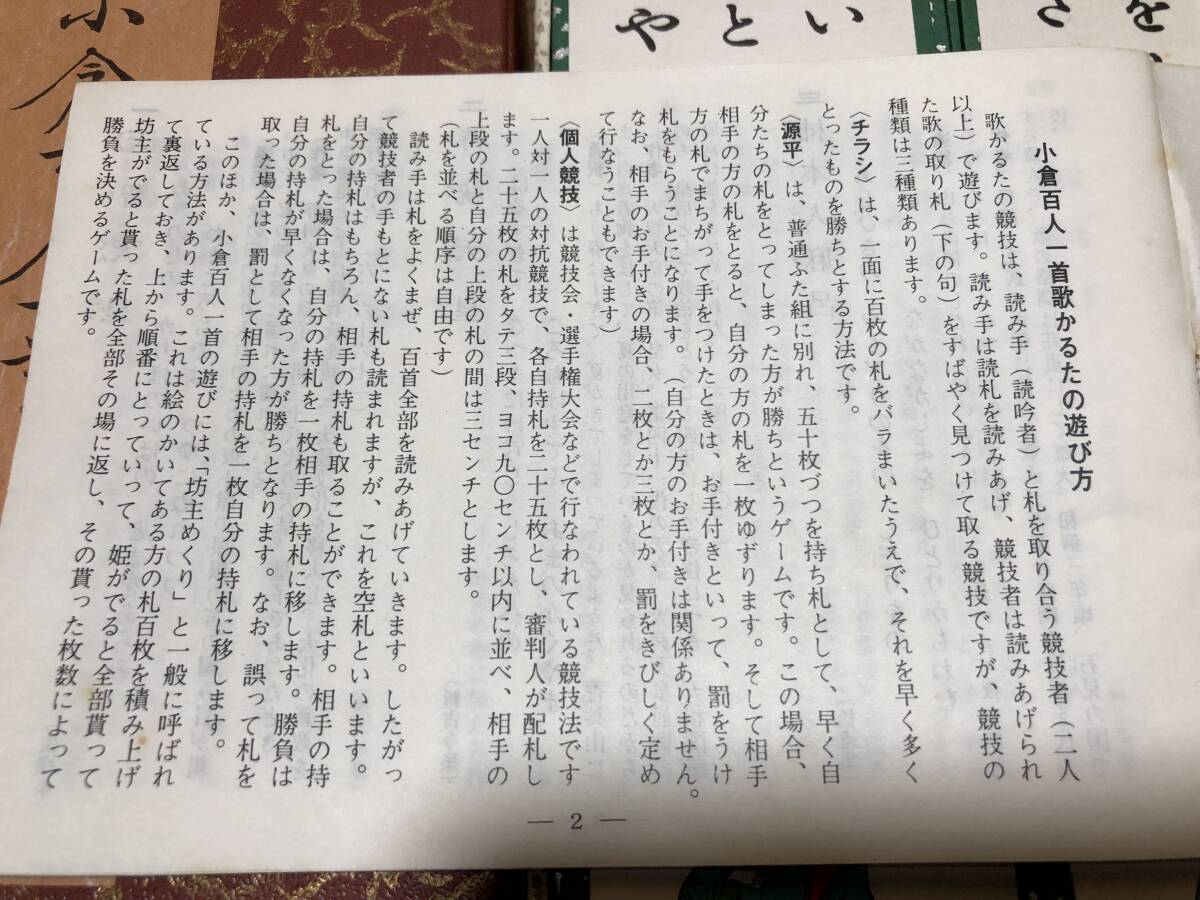 小倉百人一首歌かるたの遊び方
歌かるたの競技は、読み手（読吟者）と札を取り合う競技者（二人
以上）で遊びます。読み手は読札を読みあげ、競技者は読みあげられ
た歌の取り札（下の句）をすばやく見つけて取る競技ですが、競技の
種類は三種類あります。
〈チラシ〉は、一面に百枚の札をバラまいたうえで、それを早く多く
とったものを勝ちとする方法です。
〈源平〉は、普通ふた組に別れ、五十枚づつを持ち札として、早く自
分たちの札をとってしまった方が勝ちというゲームです。この場合、
相手の方の札をとると、自分の方の札を一枚ゆずります。そして相手
方の札でまちがって手をつけたときは、お手付きといって、罰をうけ
札をもらうことになります。（自分の方のお手付きは関係ありません。
なお、相手のお手付きの場合、二枚とか三枚とか、罰をきびしく定め
て行なうこともできます）
〈個人競技〉は競技会・選手権大会などで行なわれている競技法です
一人対一人の対抗競技で、各自持札を二十五枚とし、審判人が配札し
ます。二十五枚の札をタテ三段、ヨコ九〇センチ以内に並べ、相手の
上段の札と自分の上段の札の間は三センチとします。
（札を並べる順序は自由です）
読み手は札をよくまぜ、百首全部を読みあげていきます。したがっ
て競技者の手もとにない札も読まれますが、これを空札といいます。
自分の持札はもちろん、相手の持札も取ることができます。相手の持
札をとった場合は、自分の持札を一枚相手の持札に移します。勝負は
自分の持札が早くなくなった方が勝ちとなります。なお、誤って札を
取った場合は、罰として相手の持札を一枚自分の持札に移します。
このほか、小倉百人一首の遊びには、「坊主めくり」と一般に呼ばれ
ている方法があります。これは絵のかいてある方の札百枚を積み上げ
て裏返しておき、上から順番にとっていって、姫がでると全部貰って
坊主がでると貰った札を全部その場に返し、その貰った枚数によって
勝負を決めるゲームです。
— 2 —
を
さ
い
と
や
小倉百人一首